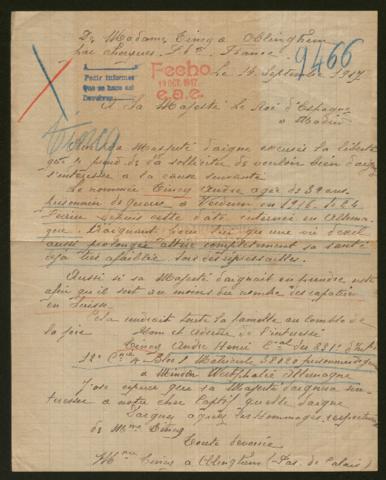 De Madame Cincq a Oblinghem
par Chocques. P. d. C. France
9466
Le 15 Septembre 1917
Pedir informes
Que se hace asi
Devolver
Fecho
19 OCT. 1917
e.a.e.
A Sa Majesté Le Roi d'Espagne
a Madrid
Cincq
Majesté daigne excuser la liberté
que je prend de la solliciter de vouloir bien daigner
s'intéresser a la cause suivante
Le nommée Cincq André agée de 32 ans
prisonnier de guerre a Verdun en 1916. le 24
Février depuis cette date internée en Allema-
gne. Craignant pour lui que une vie d'exil
aussi prolongée altère complètement sa santé
deja tres afaiblie sois des
Aussi si sa Majesté daignait en prendre note
afin qu'il soit au moins du nombre des capatier
en Suisse
Cela mettrait toute la famille au comble de
la joie Nom et adresse de l'interessé
Cincq André Henri C.al du 331e d'Inf.
12e Cnie Bloc 1 Matricule prisonnier de guerre
a Minden Westphalie Allemagne
J'ose espérer que sa Majesté daignera s'in-
teresser a notre cher Captif qu'elle daigne
agréer les Hommages respectueux
de Mme Cincq
Toute dévouée
Mme Cincq a Oblinghem (Pas. de Calais)